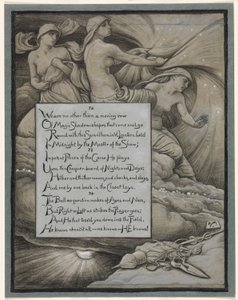 We are no other than a moving row
Of Magic Shadow-shapes that come and go
Round with the Sun-illumin'd Lantern held
In Midnight by the Master of the Show;
Impotent Pieces of the Game He plays
Upon this Chequer-board of Nights and Days;
Hither and thither moves, and checks, and slays,
And one by one back in the Closet lays.
The Ball no question makes of Ayes and Noes,
But Right or Left as strikes the Player goes;
And He that toss'd you down into the Field,
He knows about it all—HE knows—HE knows!